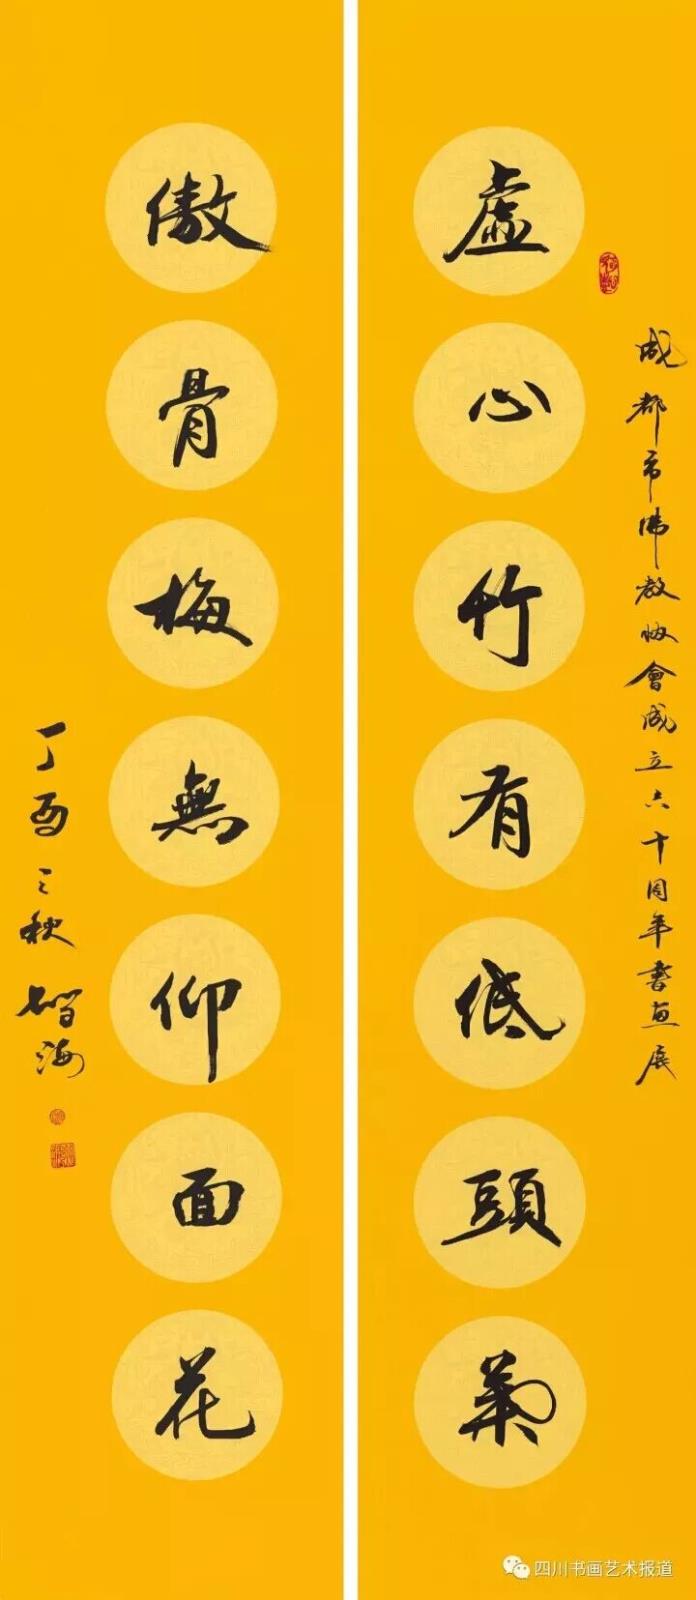 成都市佛教協會成立六十周年書畫展
虛心竹有低頭葉
傲骨梅無仰面花
丁酉之秋
智海
四川书画艺术报道